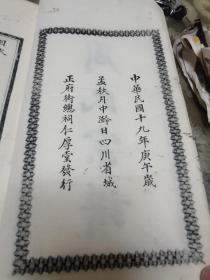 中華民國十九年庚午歲
孟秋月中澣日四川省城
正府街總祠仁厚堂發行